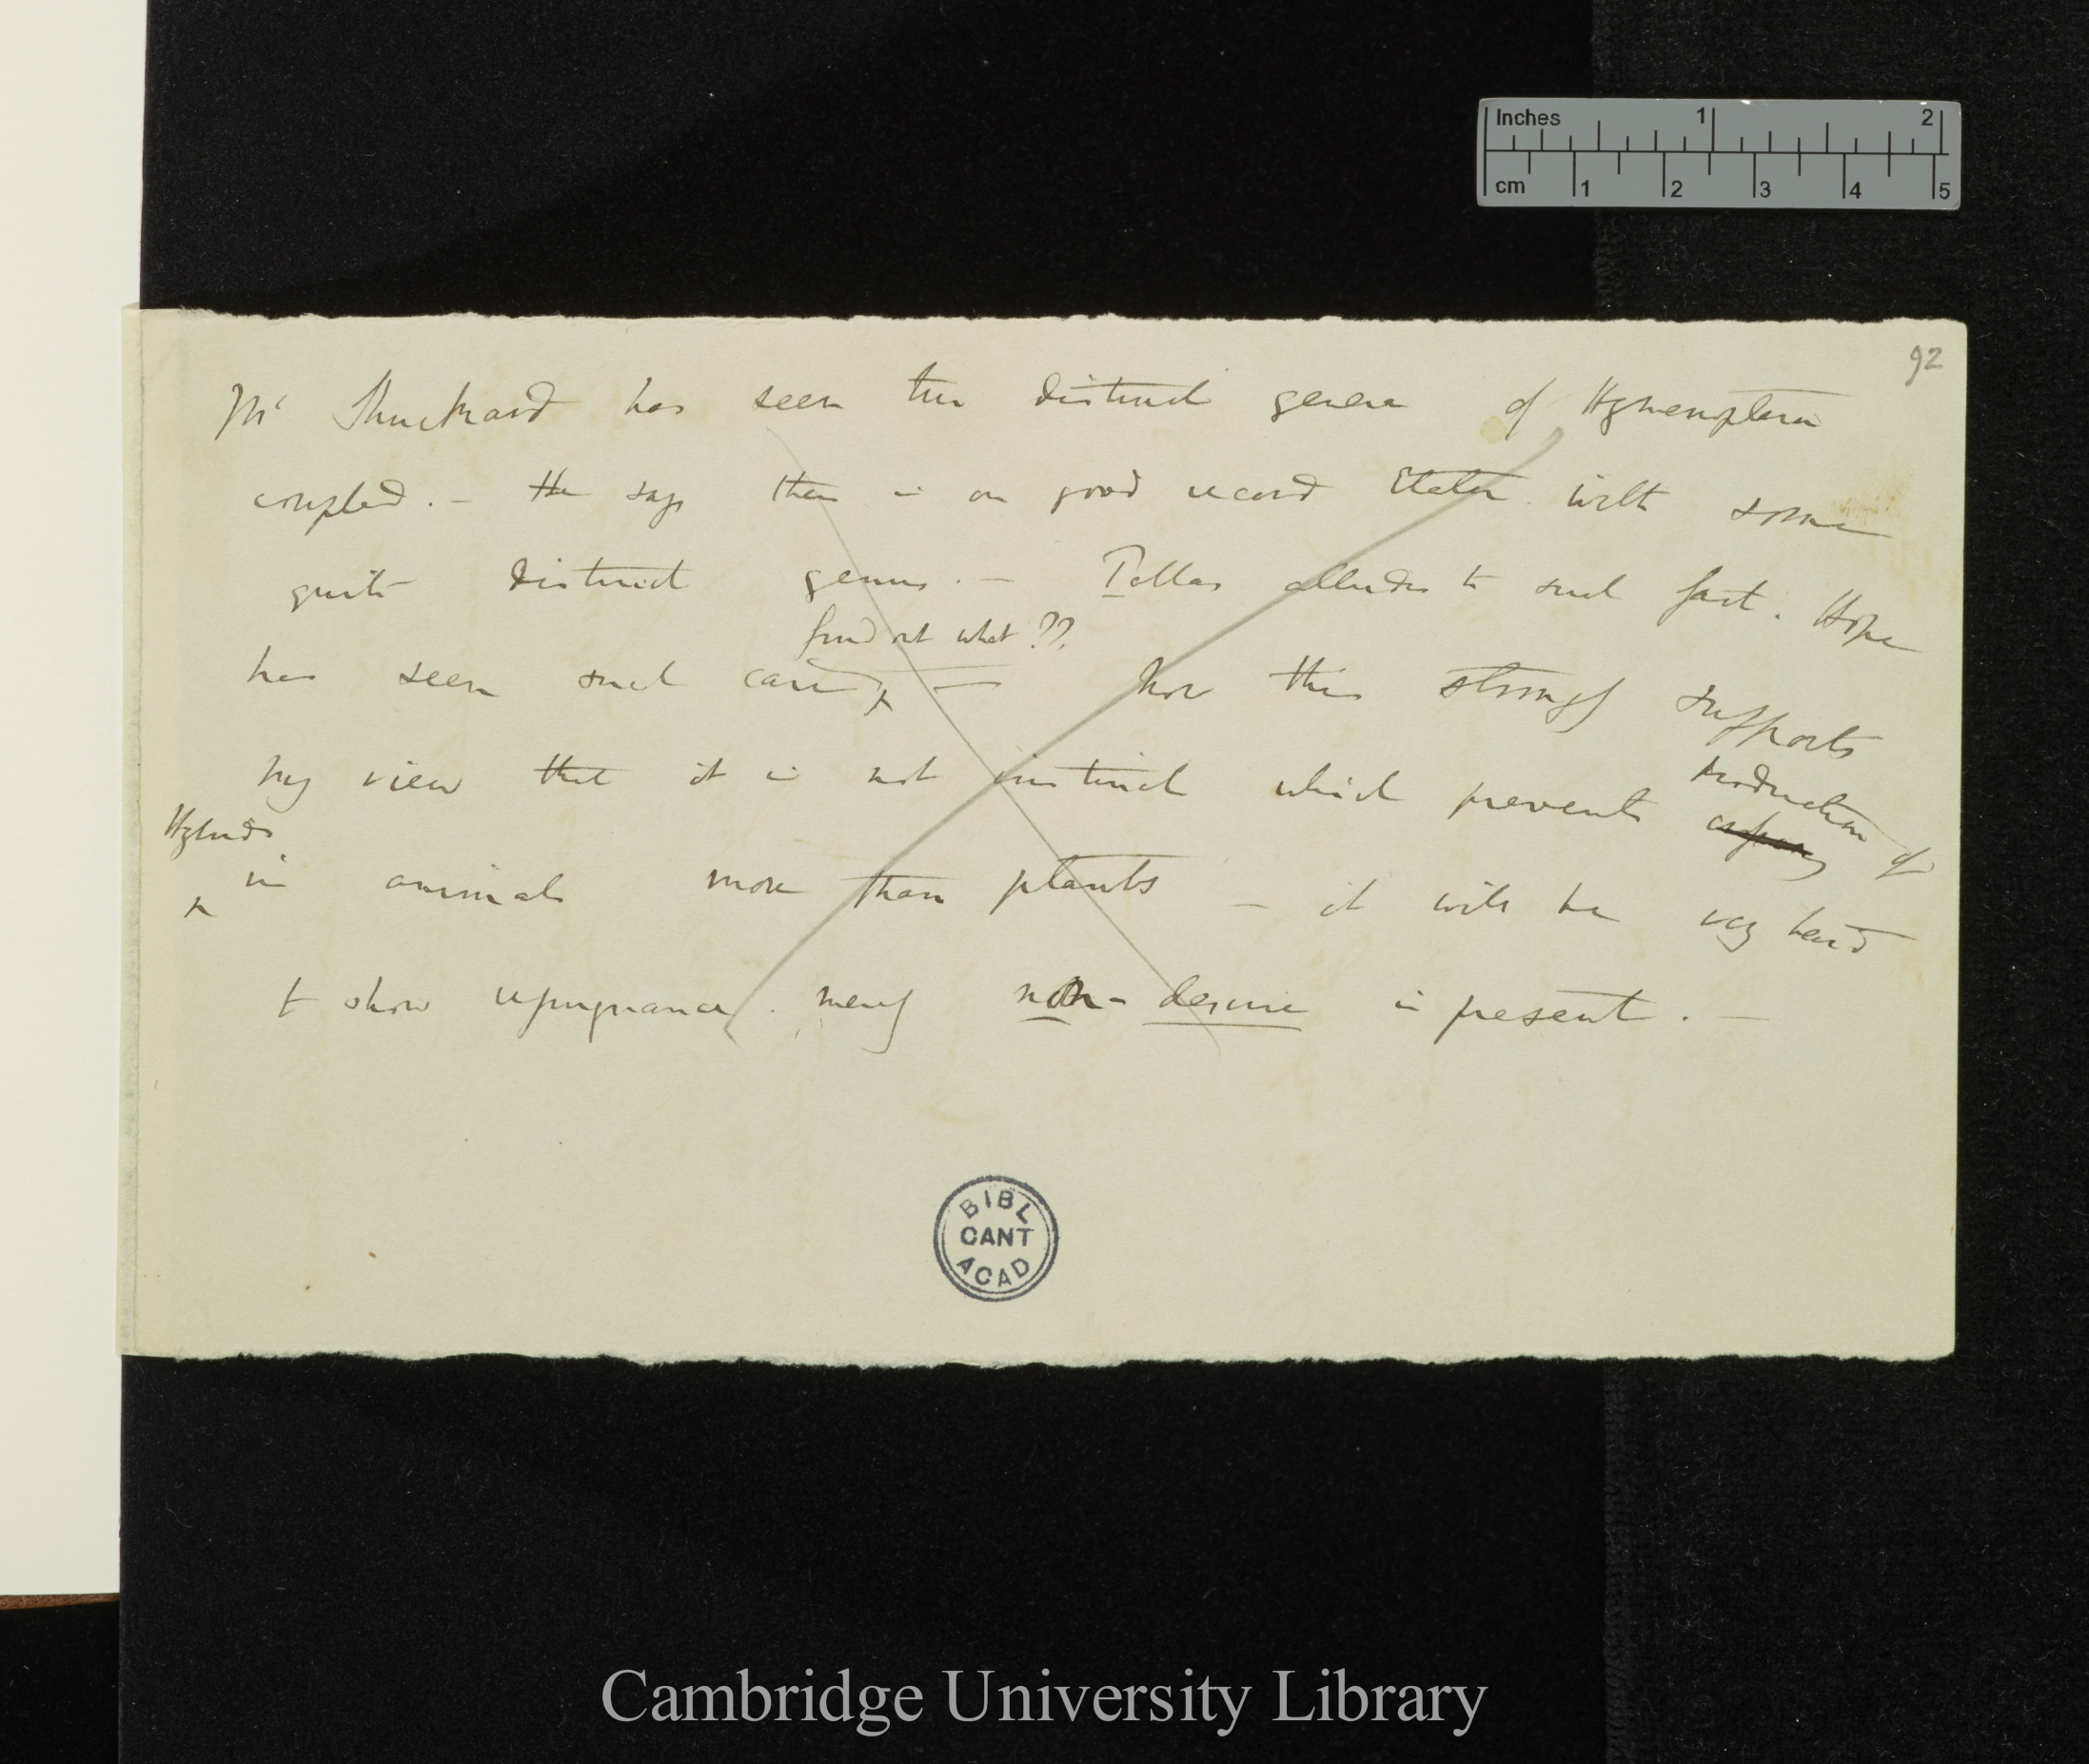 Inches 1 2
cm 1 2 3 4 5
92
Mr Shuckard has seen two distinct genera of Hymenoptera
coupled. — He says there is on good record Elater with some
quite distinct genus. — Pallas alludes to such fact. Hope
find out what??
has seen such cases — how this strongly supports
my view that it is not instinct which prevents production of
Hybrids
in animals more than plants — it will be very hard
to show repugnance. merely non-desire is present. —
BIBL
CANT
ACAD
Cambridge University Library